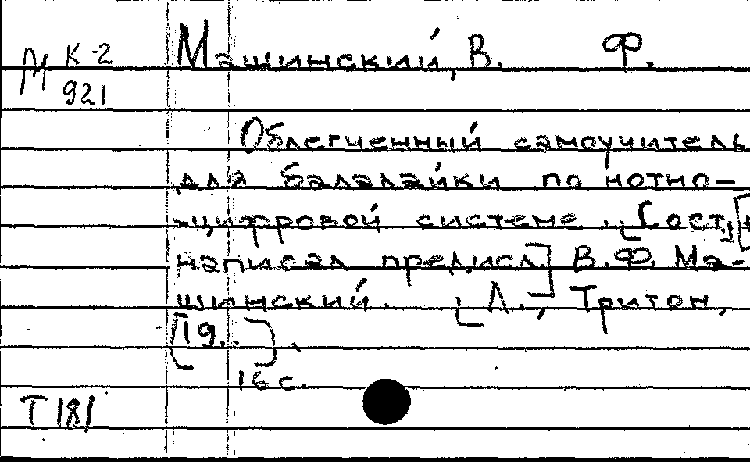 М К-2
921
Машинский, В. Ф.
Облегченный самоучитель
для балалайки по нотно-
-цифровой системе. [Сост.
написал предисл.] В.Ф. Ма-
шинский. [Л.], Тритон,
[19..].
16 с.
Т 181